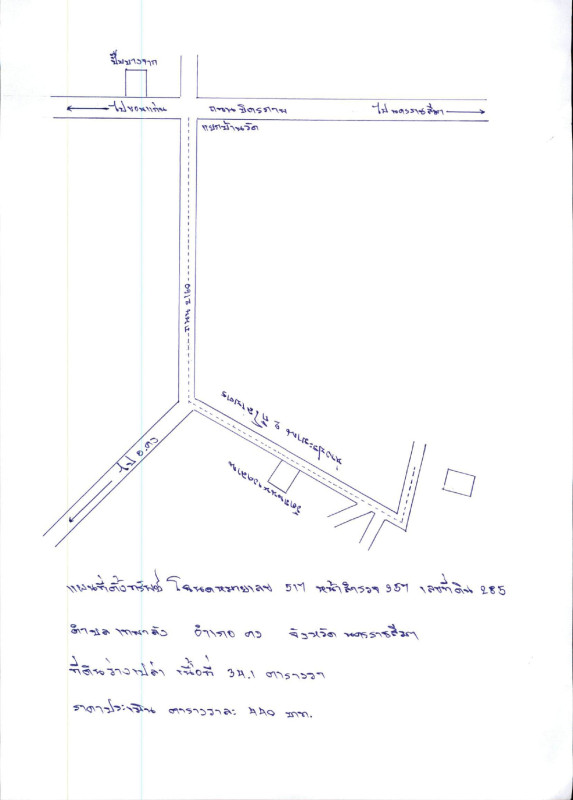 ปั๊มบางจาก
ไปขอนแก่น
ถนนมิตรภาพ
ไปนครราชสีมา
แยกบ้านวัด
ถนน 2160
ไป อ.คง
ห่างประมาณ 2 กิโลเมตร
แผนที่ตั้งทรัพย์ โฉนดหมายเลข 517 หน้าสำรวจ 357 เลขที่ดิน 285
ตำบล เทพาลัย อำเภอ คง จังหวัด นครราชสีมา
ที่ดินว่างเปล่า เนื้อที่ 34.1 ตารางวา
ราคาประเมิน ตารางวาละ 440 บาท.